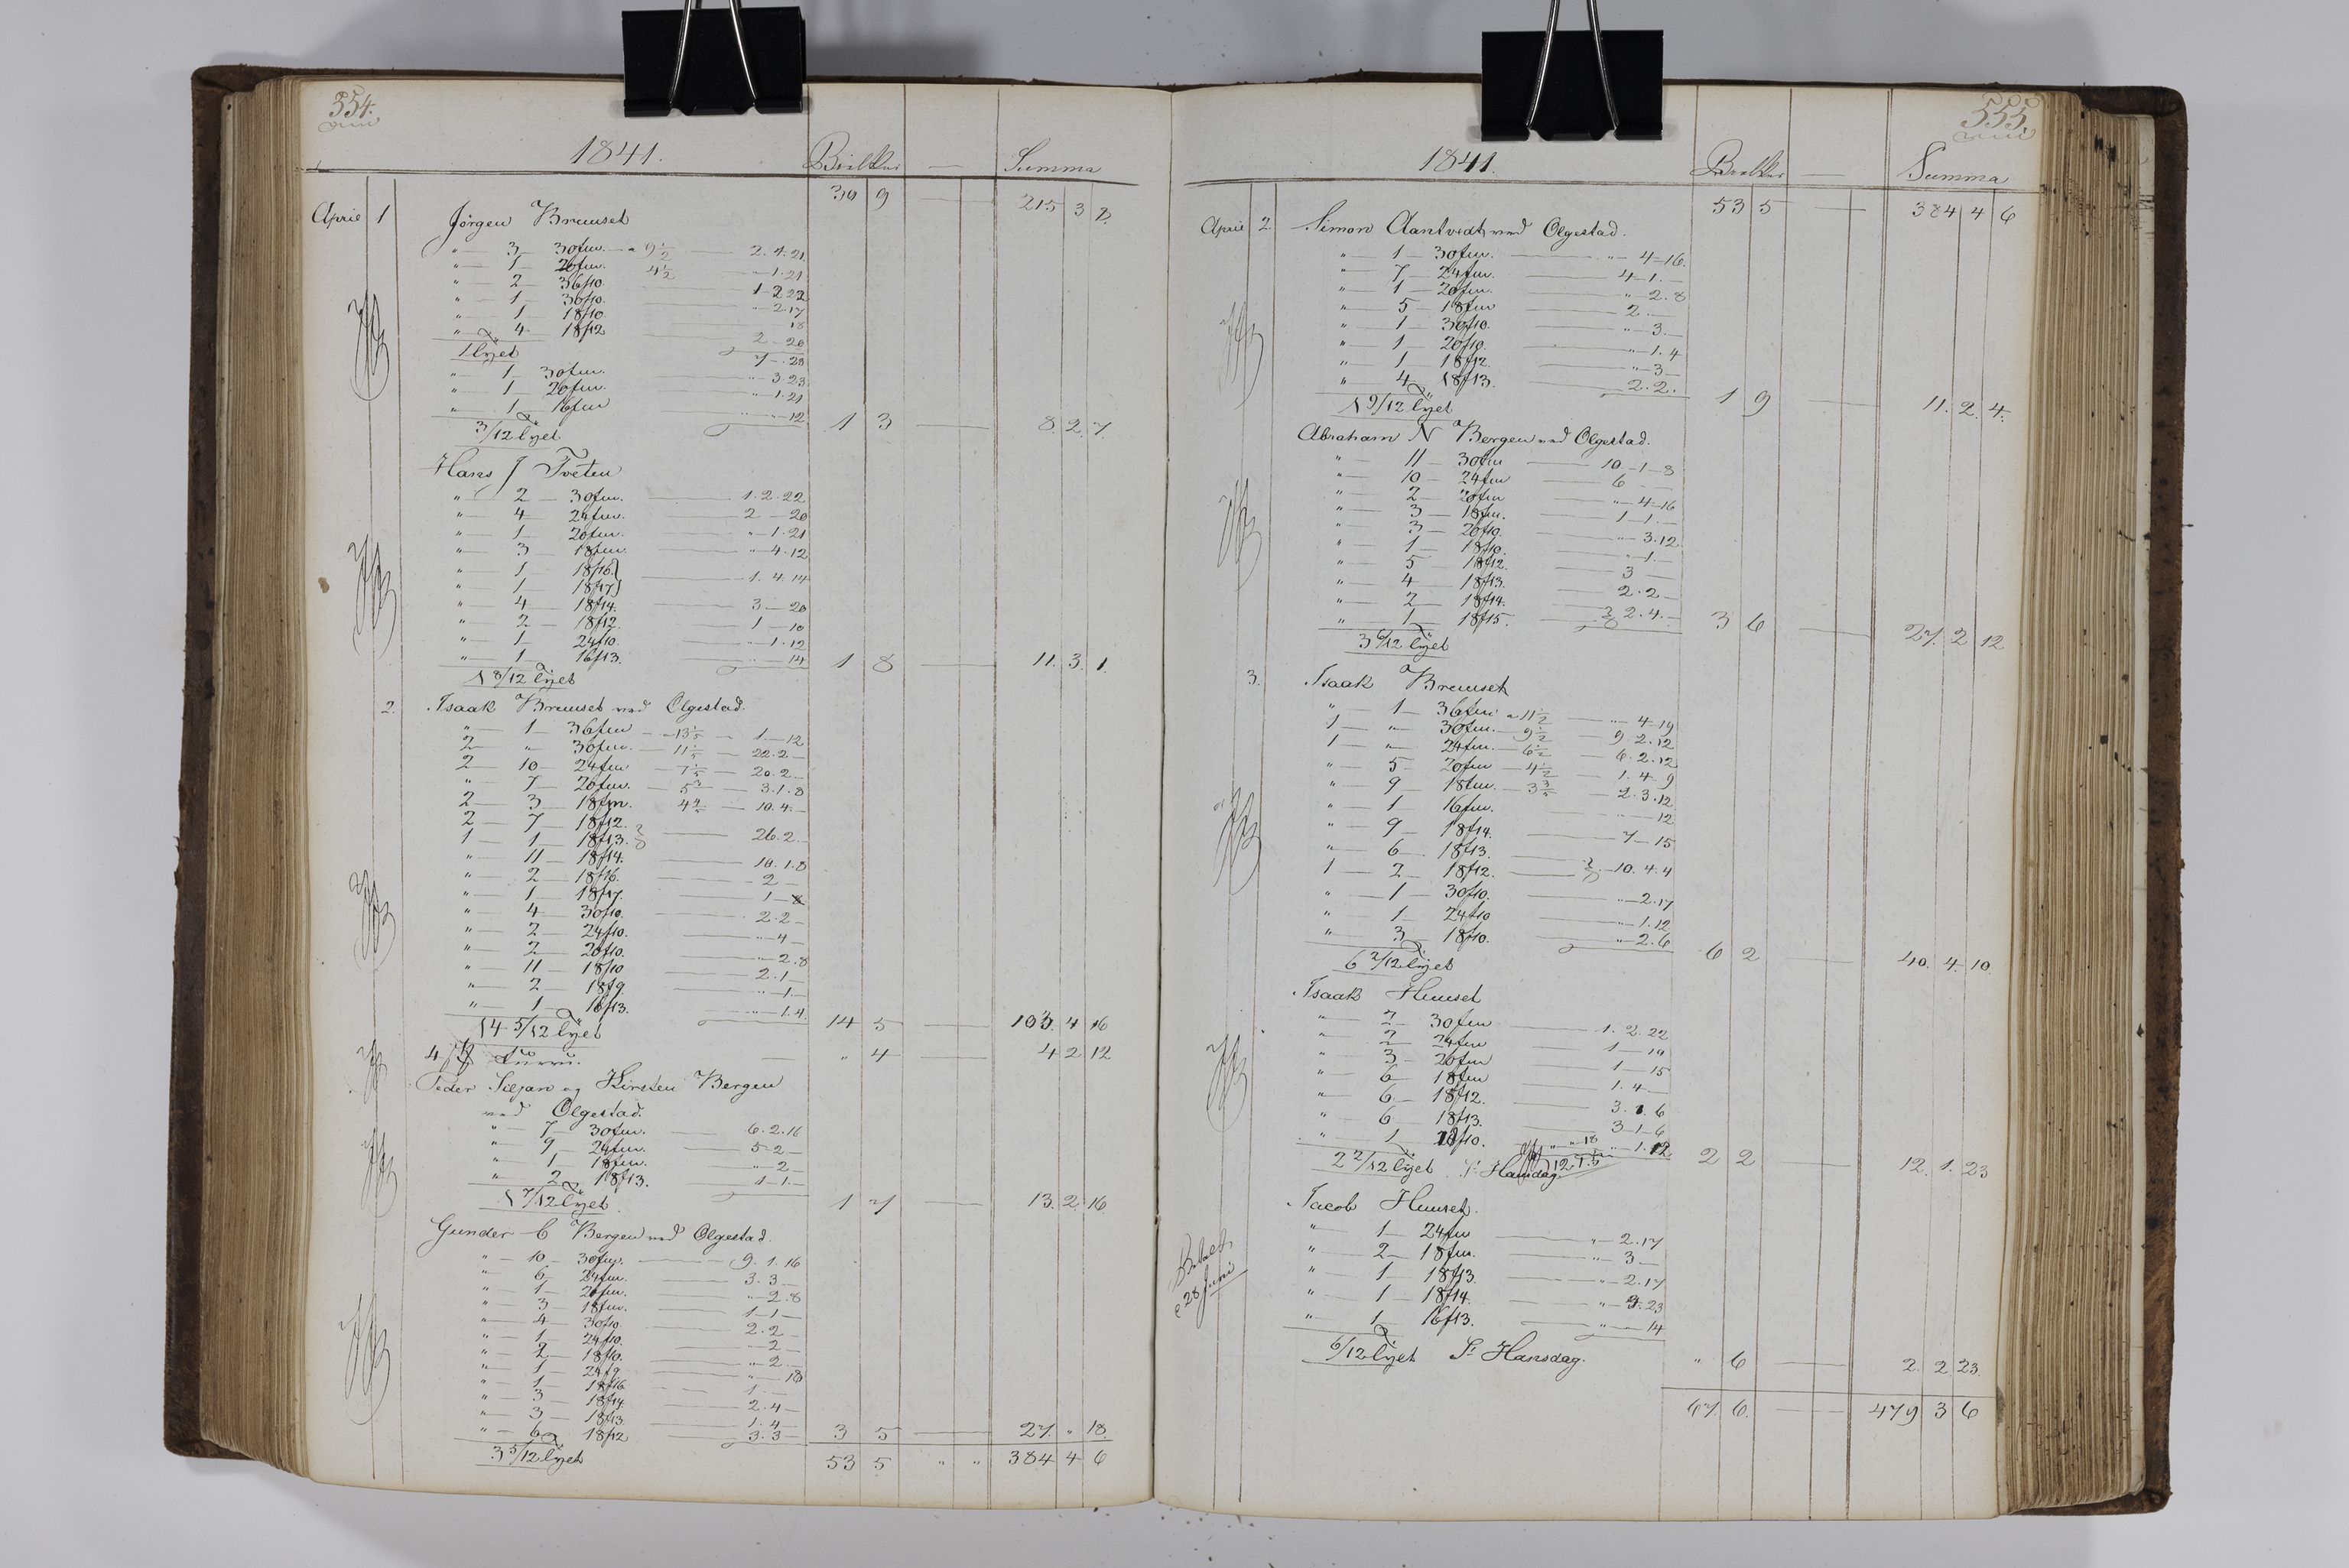 554.
1841. Summa
30 9 — 215 3
April 1 Jörgen Bruuset
" 3 30fm. 9½ — 2.4.21
" 1 20fm. 4½ — " 1.21
" 2 36f10. — 1-2 22
" 1 30f10. — " 2.17
" 1 18f10 — 18
" 4 18f12 — 2 - 20
1 tylt — 7 - 23
" 1 30fm. — " 3.23
" 1 20fm. — " 1.21
" 1 16fm — " 12
3/12 tylt 1 3 — 8. 2. 7.
Hans J Tveten
" 2 — 30fm. — 1. 2. 22
" 4 — 24fm. — 2 — 20
" 1 — 20fm. — " 1.21
" 3 — 18fm. — " 4.12
" 1 18f16.}
" 1 18f17} — 1. 4. 14
" 4 — 18f14. — 3 — 20
" 2 — 18f12. — 1 — 10
" 1 24f10. — " 1.12
" 1 16f13. — " 14
1 8/12 tylt 1 8 — 11. 3. 1.
2. Isaak Bruuset ved Olgestad.
" 1 — 36fm — 1 — 12
2 — " 30fm. — 22.2 —
2 — 10 — 24fm — 20.2 —
" 7 — 20fm. — 3.1.8
2 — 3 — 18fm. — 10.4. —
2 — 7 — 18f12.
1 — 1 — 18f13. — 26.2 —
" 11 — 18f14. — 10.1.8
" 2 — 18f16. — 2 —
" 1 — 18f17. — 1 —
" 4 — 30f10. — 2.2 —
" 2 — 24f10. — " 4 —
" 2 — 20f10. — " 2.8
" 11 — 18f10 — 2.1 —
" 2 — 18f9. — " 1 —
" 1 — 16f13. — " 1.4
14 5/12 tylt 14 5 — 103. 4 16
" 4 — 4 2 12
Peder Siljan og Kirsten Bergen
ved Olgestad.
" 7 — 30fm. — 6.2.16
" 9 — 24fm. — 5-2 —
" 1 — 18fm. — " 2 —
" 2 — 18f13. — 1-1 —
1 7/12 tylt. 1 7 — 13. 2. 16
Gunder C Bergen ved Olgestad.
" 10 — 30fm. — 9. 1. 16
" 6 — 24fm. — 3. 3 —
" 1 — 20fm. — " 2.8
" 3 — 18fm. — 1-1 —
" 4 — 30f10 — 2.2 —
" 1 — 24f10. — " 2 —
" 2 — 18f10. — " 2 —
" 1 — 24f9 — 18
" 1 — 18f16 — 1. —
" 3 — 18f14 — 2.4 —
" 3 — 18f13. — 1.4 —
" 6 — 18f12 — 3.3 — 3 5 — 27. " 18.
3 5/12 tylt 53 5 " " 384 4 6
555.
1841. Summa
53 5 — 384 4 6
April 2. Simon Aantvedt ved Olgestad.
" 1 — 30fm. — " 4-16.
" 7 — 24fm. — 4-1. —
" 1 — 20fm. — " 2.8
" 5 — 18fm — 2. —
" 1 — 30f10. — " 3. —
" 1 — 20f10. — " 1.4
" 1 — 18f12. — " 3 —
" 4 — 18f13. — 2.2.
1 9/12 tylt 1 9 — 11. 2. 4.
Abraham N Bergen ved Olgestad.
" 11 — 30fm — 10.-1-8
" 10 — 24fm — 6 —
" 2 — 20fm — " 4-16
" 3 — 18fm. — 1-1. —
" 3 — 20f10. — " 3.12
" 1 — 18f10. — " 1. —
" 5 — 18f12. — 3 —
" 4 — 18f13. — 2.2 —
" 2 — 18f14.
" 1 — 18f15. — 2.4. — 3 6 — 27. 2 12
3 6/12 tylt
3. Isaak Bruuset
" 1 — 36fm — " 4-19
1 — " 30fm. 9½ — 9 2.12
1 — " 24fm. 6½ — 6.2.12
" 5 — 20fm 4½ — 1.4.9
" 9 — 18fm. — 2.3.12
" 1 — 16fm. — " 12
" 9 — 18f14. — 7 — 15
" 6 — 18f13.
1 — 2 — 18f12. — 10. 4. 4
" 1 — 30f10. — " 2.17
" 1 — 24f10 — " 1.12
" 3 — 18f10. — " 2.6
6 2/12 tylt 6 2 — 40. 4. 10.
Isaak Huuset
" 2 — 30fm — 1. 2. 22
" 2 — 24fm — 1 — 19
" 3 — 20fm — 1 — 15
" 6 — 18fm — 1. 4 —
" 6 — 18f12. — 3. 1. 6
" 6 — 18f13. — 3-1-6
" 1 — f10. — " 1.12
2 2/12 tylt. St Hansdag. 2 2 — 12. 1. 23
Jacob Huuset.
" 1 — 24fm — " 2.17
" 2 — 18fm. — " 3 —
" 1 — 18f13. — " 2.17
" 1 — 18f14. — " 3.23
" 1 — 16f13. — " 14
Betalt
28 Juni
6/12 tylt St Hansdag. " 6 — 2. 2 23.
67. 6. — 479 3 6